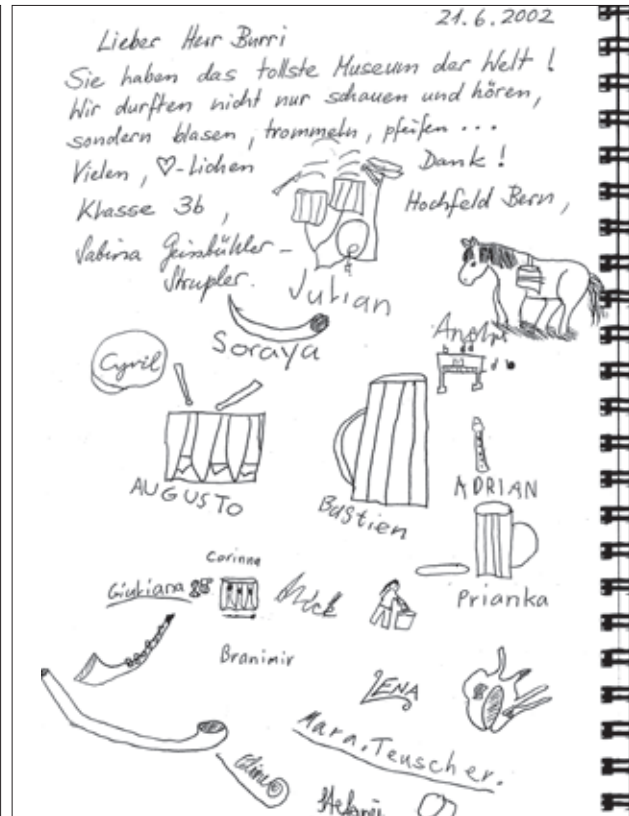 21.6.2002
Lieber Herr Burri
Sie haben das tollste Museum der Welt !
Wir durften nicht nur schauen und hören,
sondern blasen, trommeln, pfeifen ...
Vielen, ♡-lichen Dank !
Klasse 3b, Hochfeld Bern,
Sabina Geissbühler-
Strupler.
Julian
Soraya
Cyril
AUGUSTO
Bastien
ADRIAN
Prianka
Corinne
Giuliana
Branimir
LENA
Mara. Teuscher.